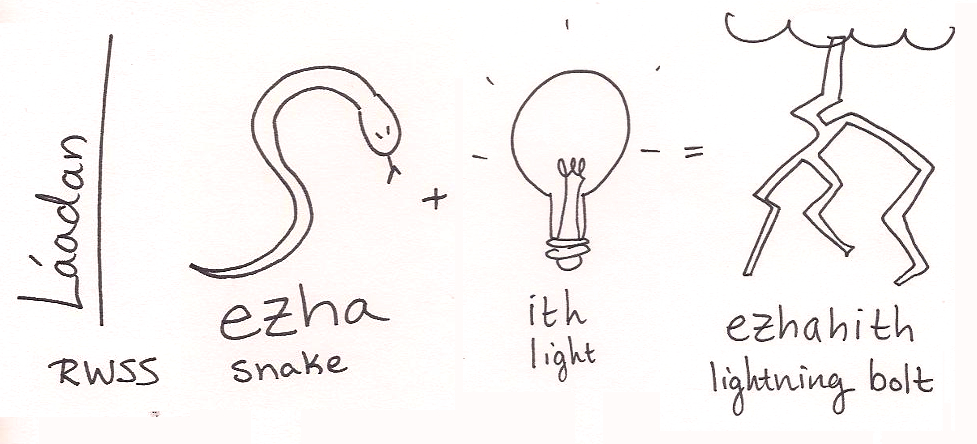 Láadan
RWSS
ezha
snake
+
ith
light
=
ezhahith
lightning bolt